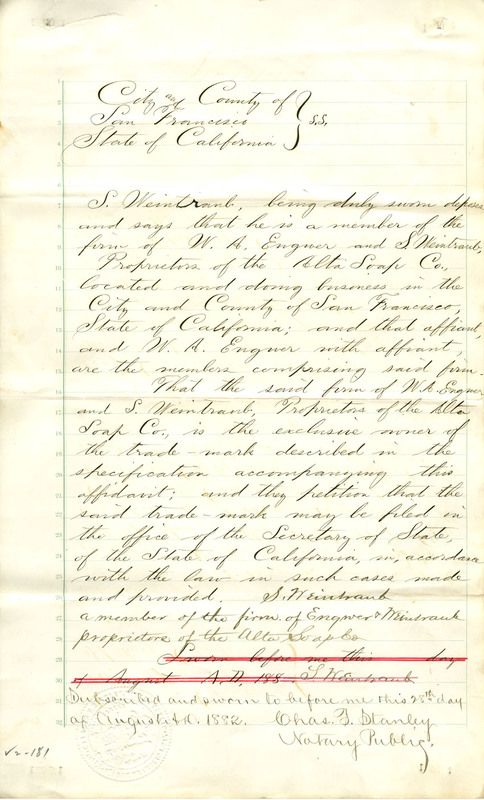 City and County of
San Francisco } S.S.
State of California
S. Weintraub, being duly sworn deposes
and says that he is a member of the
firm of W. A. Engwer and S Weintraub,
Proprietors of the Alta Soap Co.,
located and doing business in the
City and County of San Francisco,
State of California; and that affiant,
and W. A. Engwer with affiant,
are the members comprising said firm-
That the said firm of W. A. Engwer
and S. Weintraub, Proprietors of the Alta
Soap Co., is the exclusive owner of
the trade-mark described in the
specification accompanying this
affidavit; and they petition that the
said trade-mark may be filed in
the office of the Secretary of State,
of the State of California, in, accordance
with the law in such cases made
and provided. S. Weintraub
a member of the firm of Engwer & Weintraub
proprietors of the Alta Soap Co
Sworn before me this day
of August A.D. 188 . S Weintraub
Subscribed and sworn to before me this 28th day
of August A.D. 1882. Chas. T. Stanley
Notary Public,
V2-181